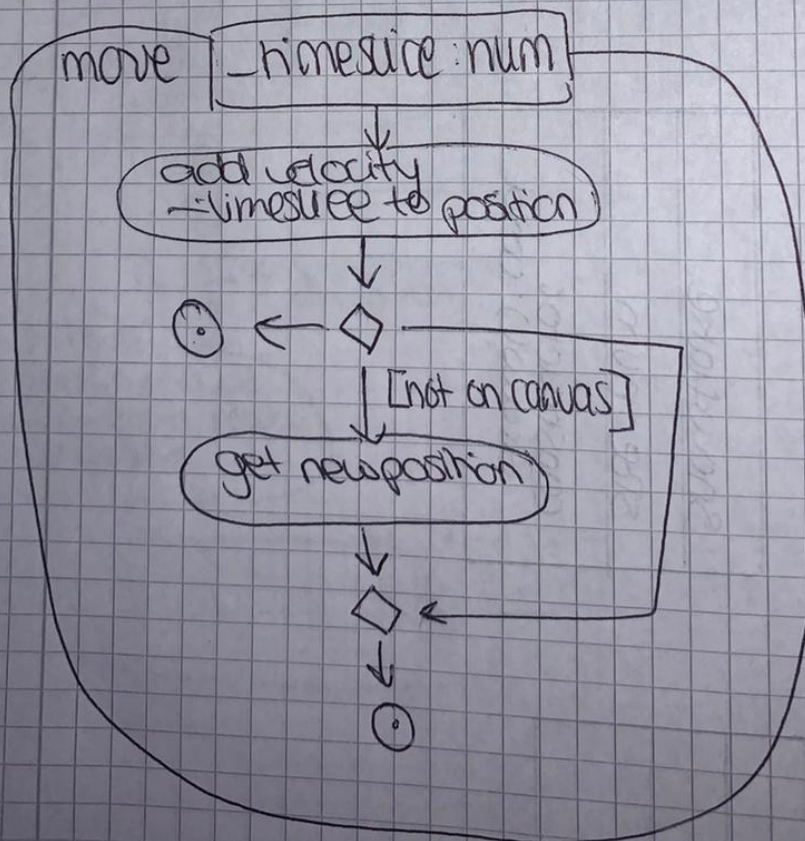 move
_timeslice : num
add velocity
_timeslice to position
[not on canvas]
get new position